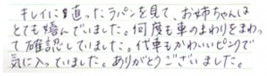 キレイに直ったラパンを見て、お姉ちゃんは
とても喜んでいました。何度も車のまわりをまわっ
て確認していました。代車もかわいいピンクで
気に入っていました。ありがとうございました。